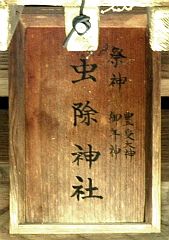 祭神
豊受大神
御年神
虫除神社